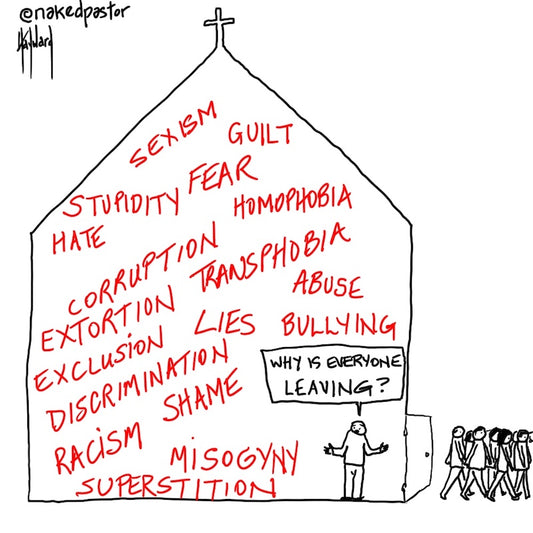 @nakedpastor
Hayward
SEXISM
GUILT
FEAR
STUPIDITY
HOMOPHOBIA
HATE
CORRUPTION
TRANSPHOBIA
ABUSE
EXTORTION
LIES
BULLYING
EXCLUSION
DISCRIMINATION
WHY IS EVERYONE
LEAVING?
SHAME
RACISM
MISOGYNY
SUPERSTITION